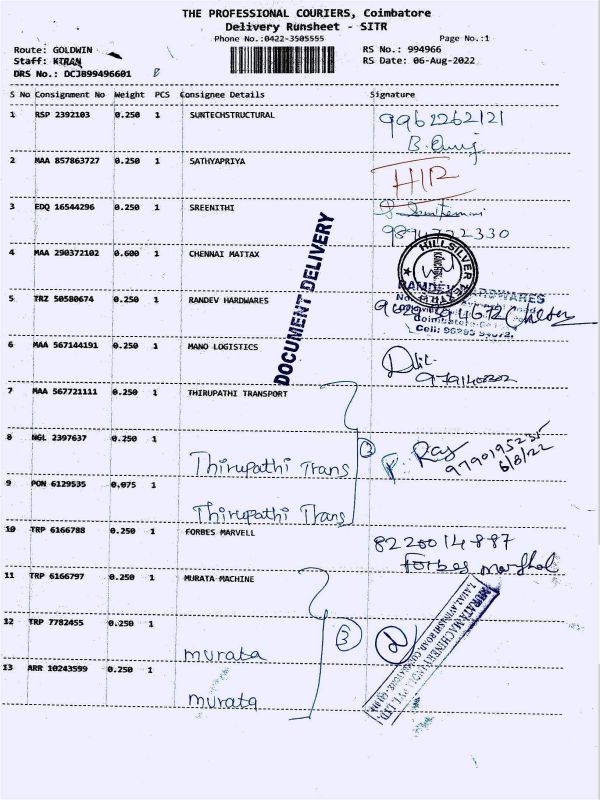 THE PROFESSIONAL COURIERS, Coimbatore
Delivery Runsheet - SITR
Phone No.:0422-3505555
Page No.:1
Route: GOLDWIN
RS No.: 994966
Staff: KIRAN
RS Date: 06-Aug-2022
DRS No.: DCJ899496601
S No Consignment No Weight PCS Consignee Details Signature
1 RSP 2392103 0.250 1 SUNTECHSTRUCTURAL
9962262121
2 MAA 857863727 0.250 1 SATHYAPRIYA
3 EDQ 16544296 0.250 1 SREENITHI
4 MAA 290372102 0.600 1 CHENNAI MATTAX
HILLSILVER
5 TRZ 50580674 0.250 1 RANDEV HARDWARES
6 MAA 567144191 0.250 1 MANO LOGISTICS
DOCUMENT DELIVERY
7 MAA 567721111 0.250 1 THIRUPATHI TRANSPORT
8 NGL 2397637 0.250 1
Thirupathi Trans
3
Ray
6/8/22
9 PON 6129535 0.075 1
Thirupathi Trans
10 TRP 6166788 0.250 1 FORBES MARVELL
8220014887
Forbes
11 TRP 6166797 0.250 1 MURATA MACHINE
12 TRP 7782455 0.250 1
murata
3
13 ARR 10243599 0.250 1
murata